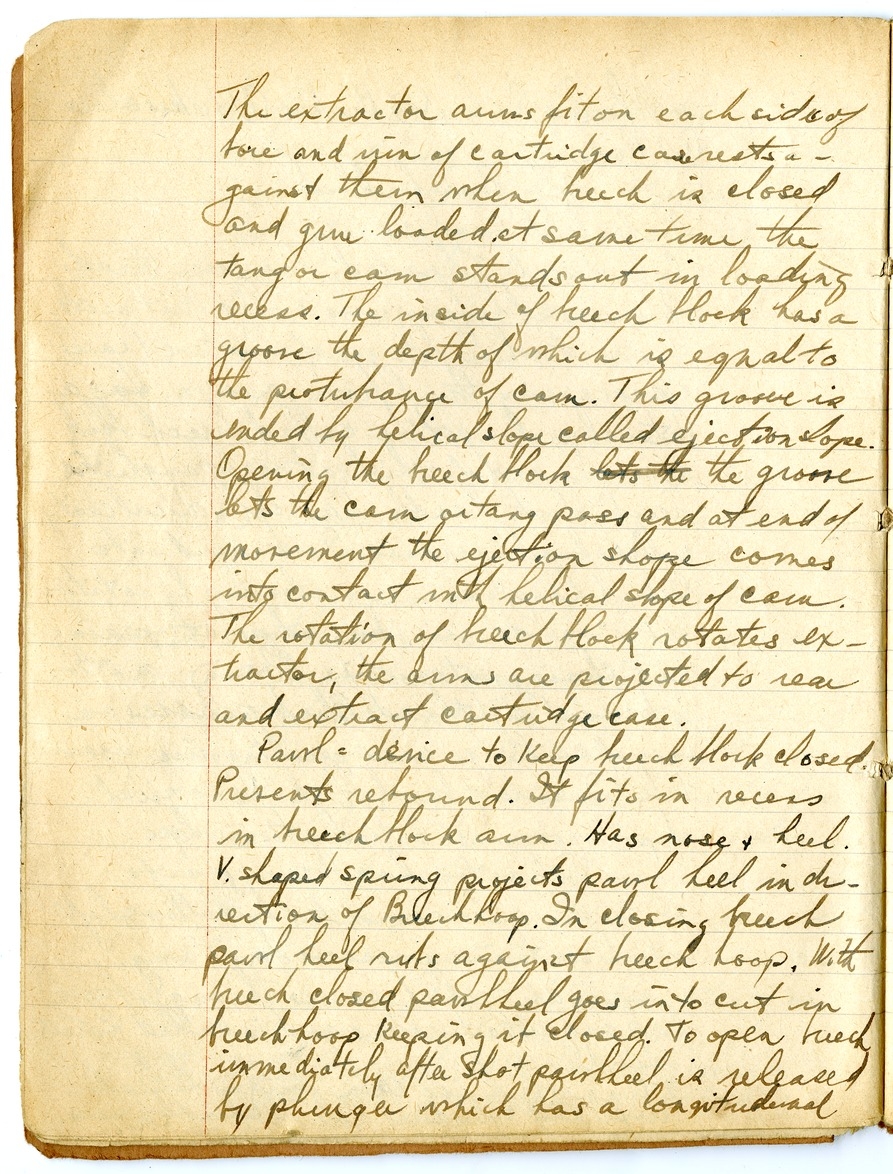 The extractor arms fit on each side of
bore and rim of cartridge case rests a-
gainst them when breech is closed
and gun loaded. At same time, the
tang or cam stands out in loading
recess. The inside of breech block has a
groove the depth of which is equal to
the protubrance of cam. This groove is
ended by helical slope called ejection slope.
Opening the breech block lets the the groove
lets the cam or tang pass and at end of
movement the ejection shope comes
into contact with helical slope of cam.
The rotation of breech block rotates ex-
tractor, the arms are projected to rear
and extract cartridge case.
Pawl = device to Keep breech block closed.
Prevents rebound. It fits in recess
in breech block arm. Has nose & heel.
V. shaped spring projects pawl heel in di-
rection of Breech hoop. In closing breech
pawl heel rubs against breech hoop. With
breech closed pawl heel goes into cut in
breech hoop Keeping it closed. To open breech
immediately after shot pawl heel is released
by plunger which has a longitudinal